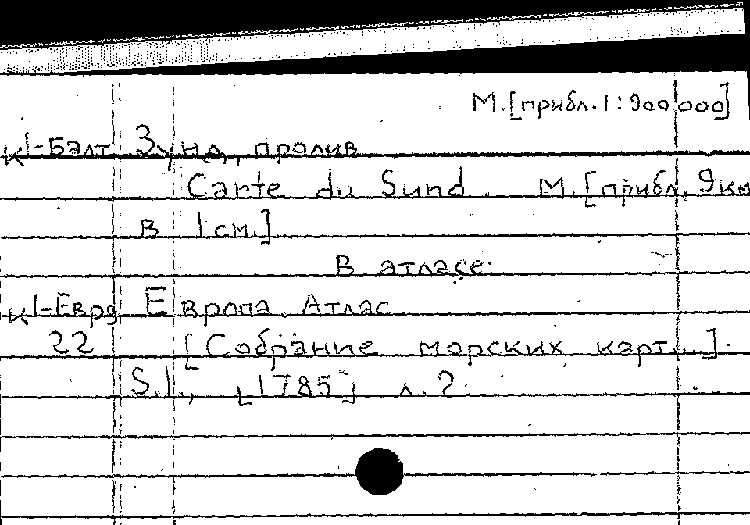 М.[прибл. 1:900 000]
К1-Балт Зунд, пролив
Carte du Sund. М.[прибл. 9км
в 1 см.]
В атласе:
К1-Евра Европа. Атлас
22 [Собрание морских карт...].
S.l., [1785] л. 2